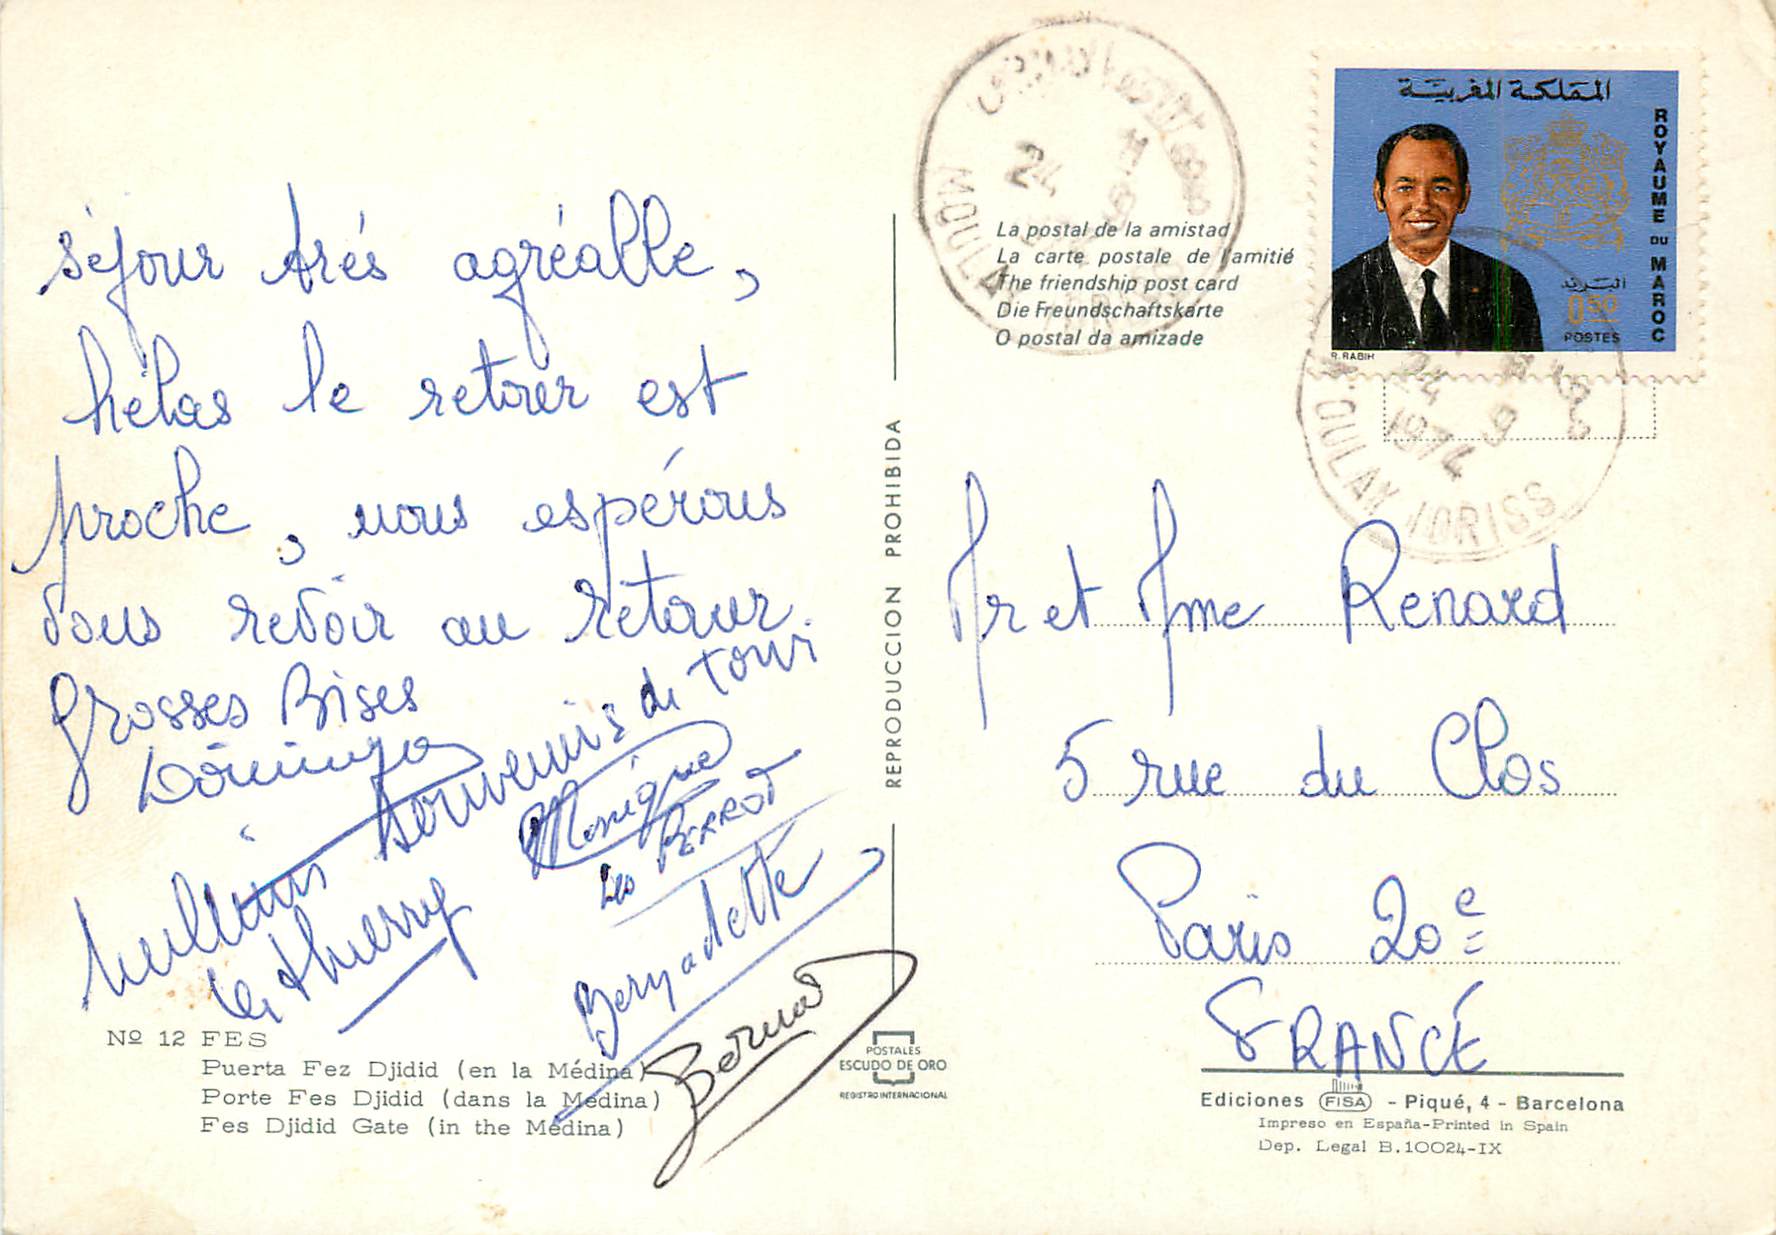 séjour très agréable,
hélas le retour est
proche, nous espérons
vous revoir au retour
Grosses Bises
Dominique
Meilleurs souvenirs de tous
les Thierry
Monique
Les PERROT
Bernadette
Bernard
Nº 12 FES
Puerta Fez Djidid (en la Médina)
Porte Fes Djidid (dans la Médina)
Fes Djidid Gate (in the Médina)
REPRODUCCION PROHIBIDA
POSTALES
ESCUDO DE ORO
REGISTRO INTERNACIONAL
MOULAY IDRISS
24
La postal de la amistad
La carte postale de l'amitié
The friendship post card
Die Freundschaftskarte
O postal da amizade
المملكة المغربية
ROYAUME DU MAROC
البريد
0.50
POSTES
R. RABIH
24 9
1974
MOULAY IDRISS
Mr et Mme Renard
5 rue du Clos
Paris 20e
FRANCE
Ediciones FISA - Piqué, 4 - Barcelona
Impreso en España-Printed in Spain
Dep. Legal B.10024-IX